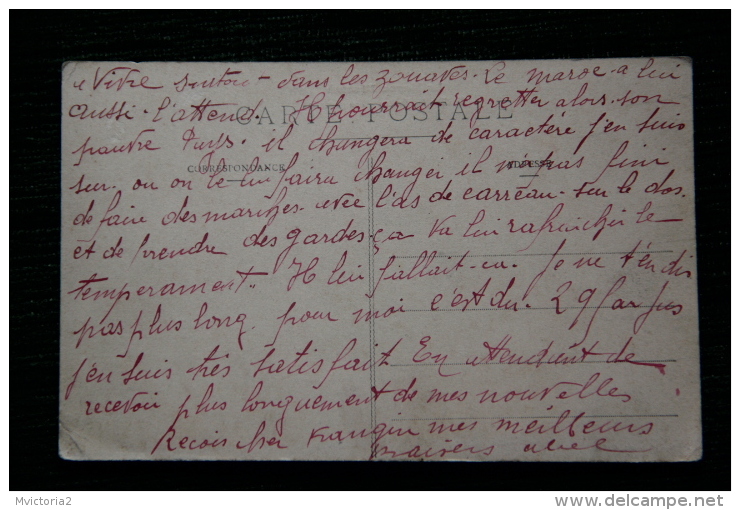 a Vitre surtou- dans les zouaves. Le maroc a lui
aussi. l'attend. Il pourrait regretter alors. son
CARTE POSTALE
pauvre Puys. il changera de caractère j'en suis
CORRESPONDANCE ADRESSE
sur. ou on le lui faira changer il n'a pas fini
de faire des marches. avec l'as de carreau. sur le dos.
et de prendre des gardes. ça va lui rafraichir le
temperament. Il lui fallait ça. Je ne t'en dis
pas plus long. pour moi c'est du. 29
j'en suis très satisfait En attendant de
recevoir plus longuement de mes nouvelles
Recois cher Frangin mes meilleurs
baisers
Mvictoria2
www.delcampe.net